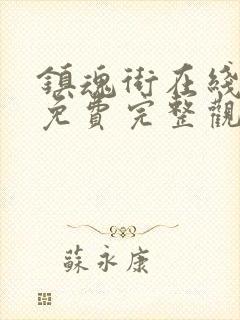 鎮魂街在綫
免費完整觀
蘇永康